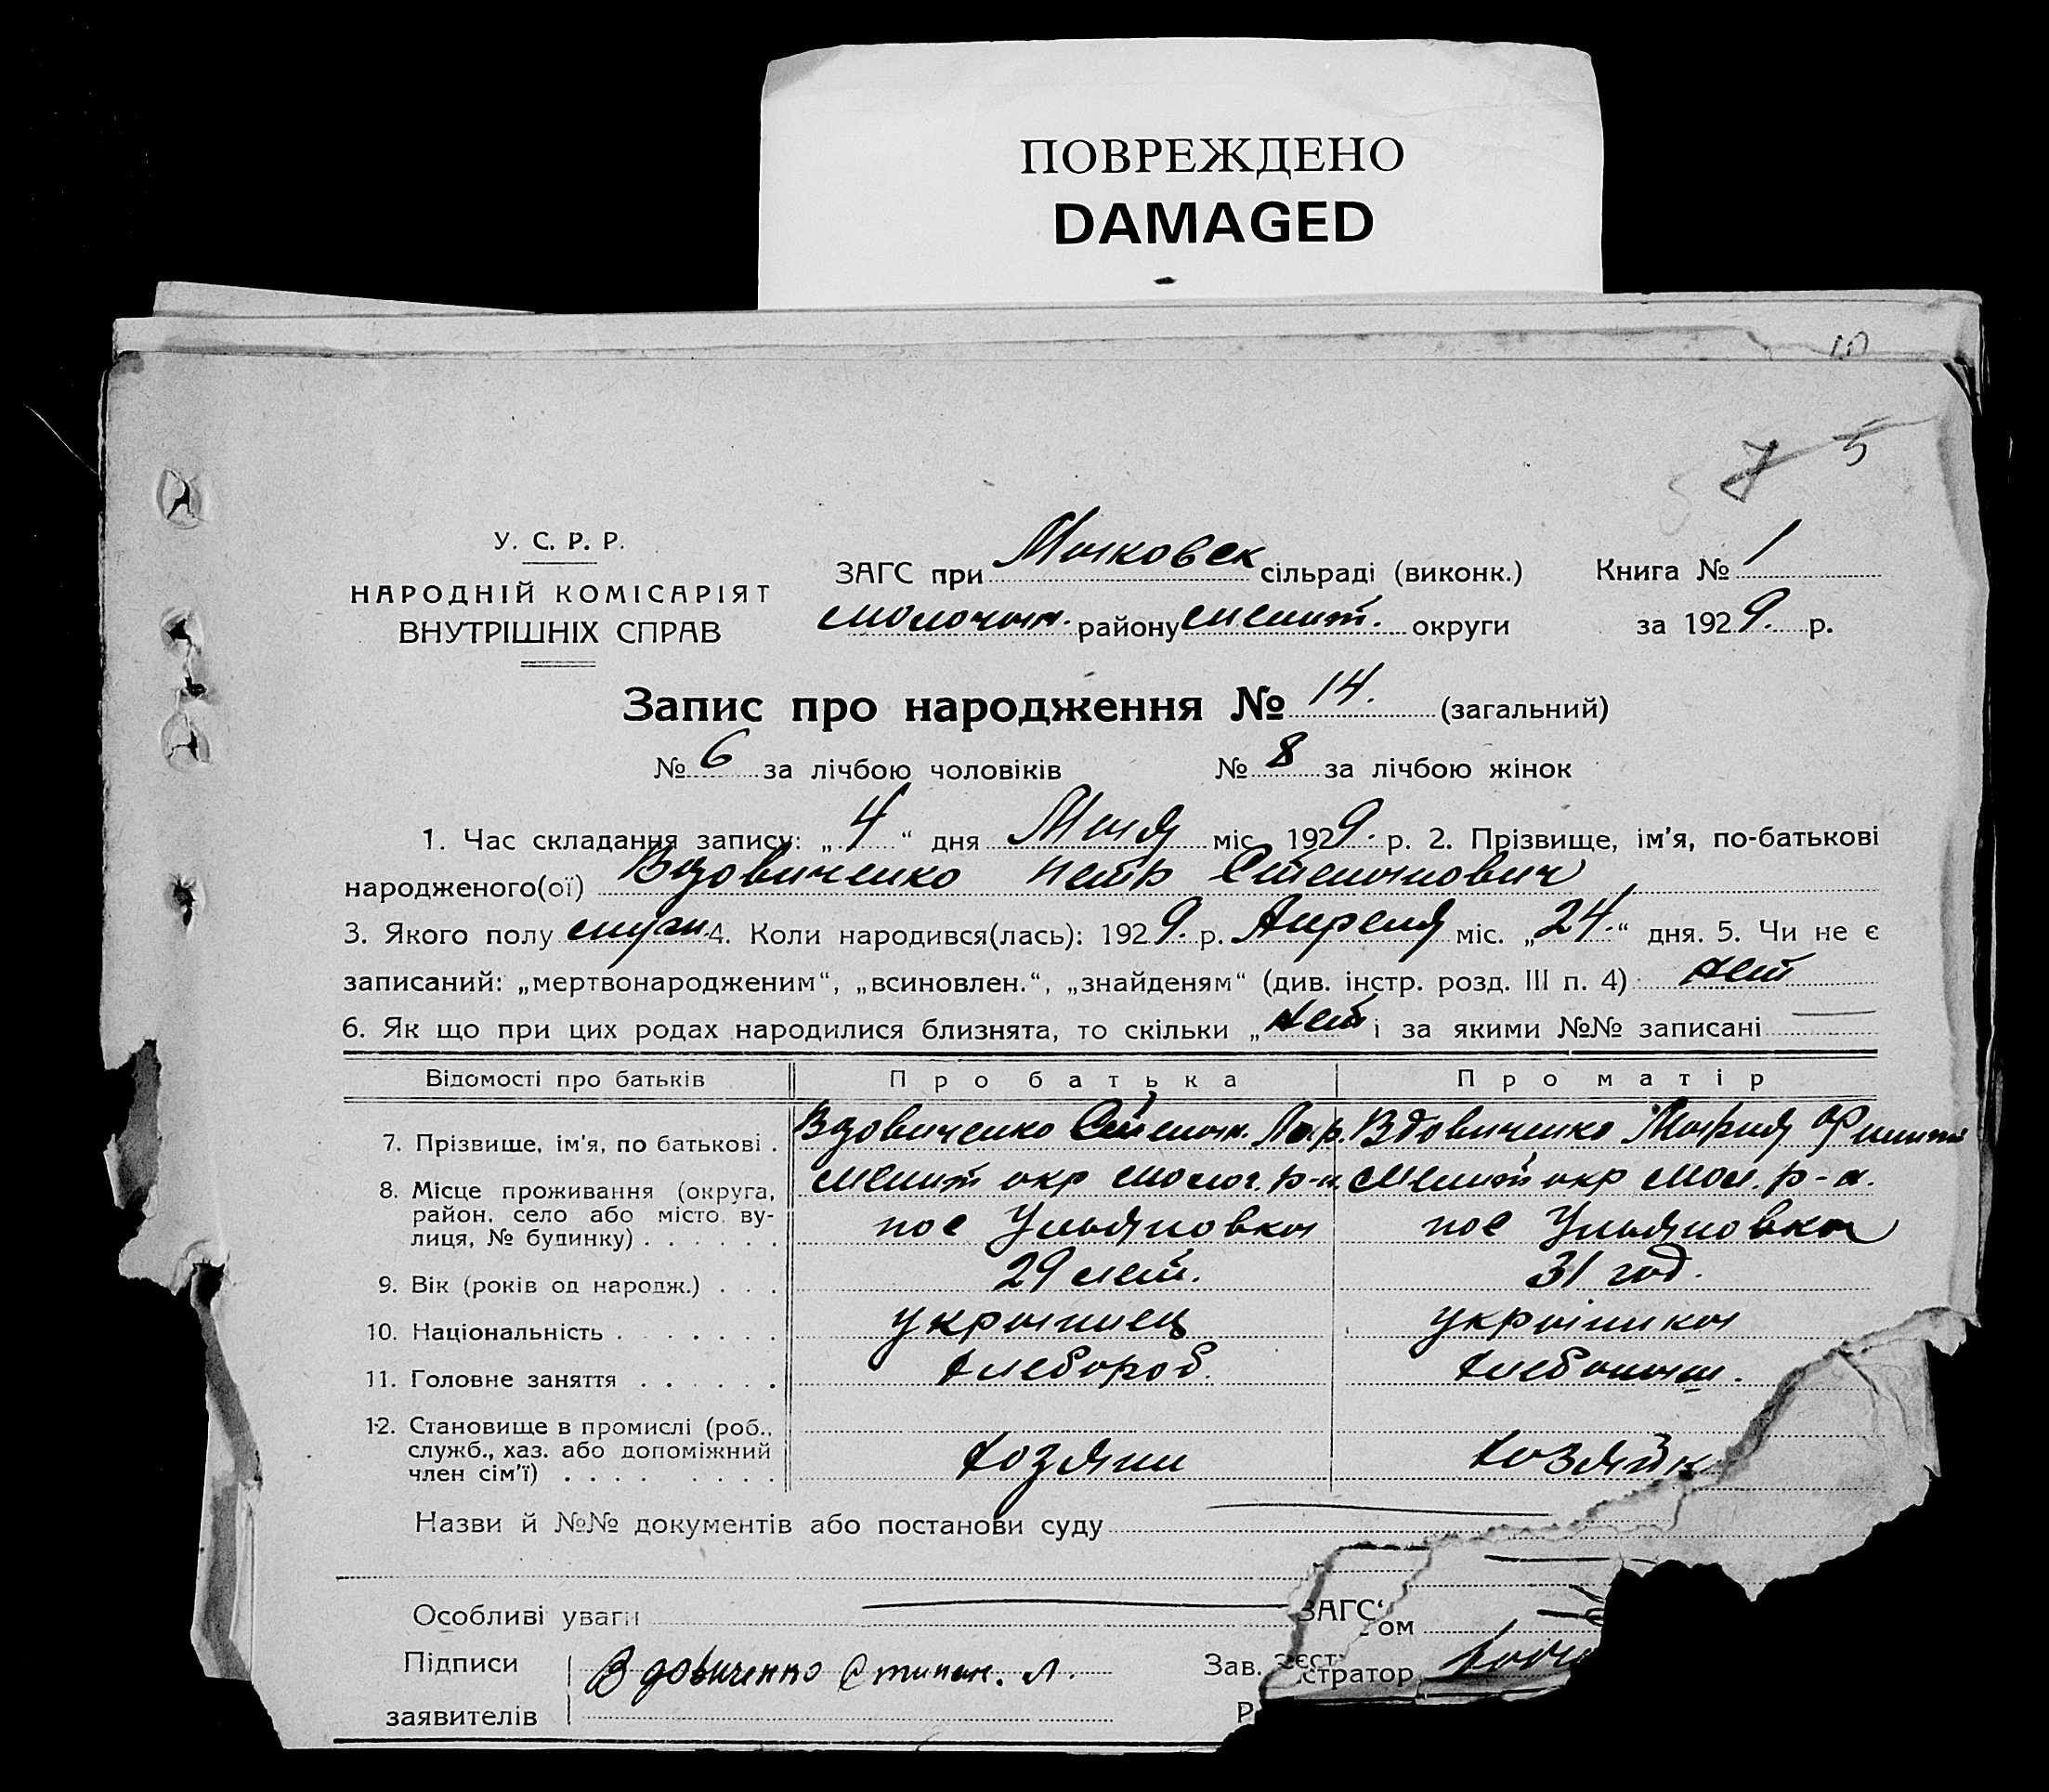 ПОВРЕЖДЕНО
DAMAGED
10
7 5
У. С. Р. Р.
НАРОДНІЙ КОМІСАРІЯТ
ВНУТРІШНІХ СПРАВ
ЗАГС при сільраді (виконк.)
Молочан. району Мелит. округи
Книга № 1
за 1929. р.
Запис про народження № 14. (загальний)
№ 6 за лічбою чоловіків № 8 за лічбою жінок
1. Час складання запису: „4“ дня Мая міс. 1929. р. 2. Прізвище, ім'я, по-батькові
народженого(ої) Вдовиченко Петр Степанович
3. Якого полу муж. 4. Коли народився(лась): 1929. р. Апреля міс. „24.“ дня. 5. Чи не є
записаний: „мертвонародженим“, „всиновлен.“, „знайденям“ (див. інстр. розд. III п. 4) нет
6. Як що при цих родах народилися близнята, то скільки „нет і за якими №№ записані —
Відомості про батьків Про батька Про матір
7. Прізвище, ім'я, по батькові . Вдовиченко Степан. Лар. Вдовиченко Мария
8. Місце проживання (округа, Мелит окр Молоч. р-н. Мелит окр Мол. р-н.
район, село або місто, ву- пос Ульяновка пос Ульяновка
лиця, № будинку) . . . . . .
9. Вік (років од народж.) . . . 29 лет. 31 год.
10. Національність . . . . . . . украинец украинка
11. Головне заняття . . . . . . хлебороб. хлебопаш.
12. Становище в промислі (роб.,
служб., хаз. або допоміжний хозяин хозяйк
член сім'ї) . . . . . . . .
Назви й №№ документів або постанови суду
Особливі уваги ЗАГС'
ом
Підписи Вдовиченко Степан. Л. Зав.
стратор
заявителів Р